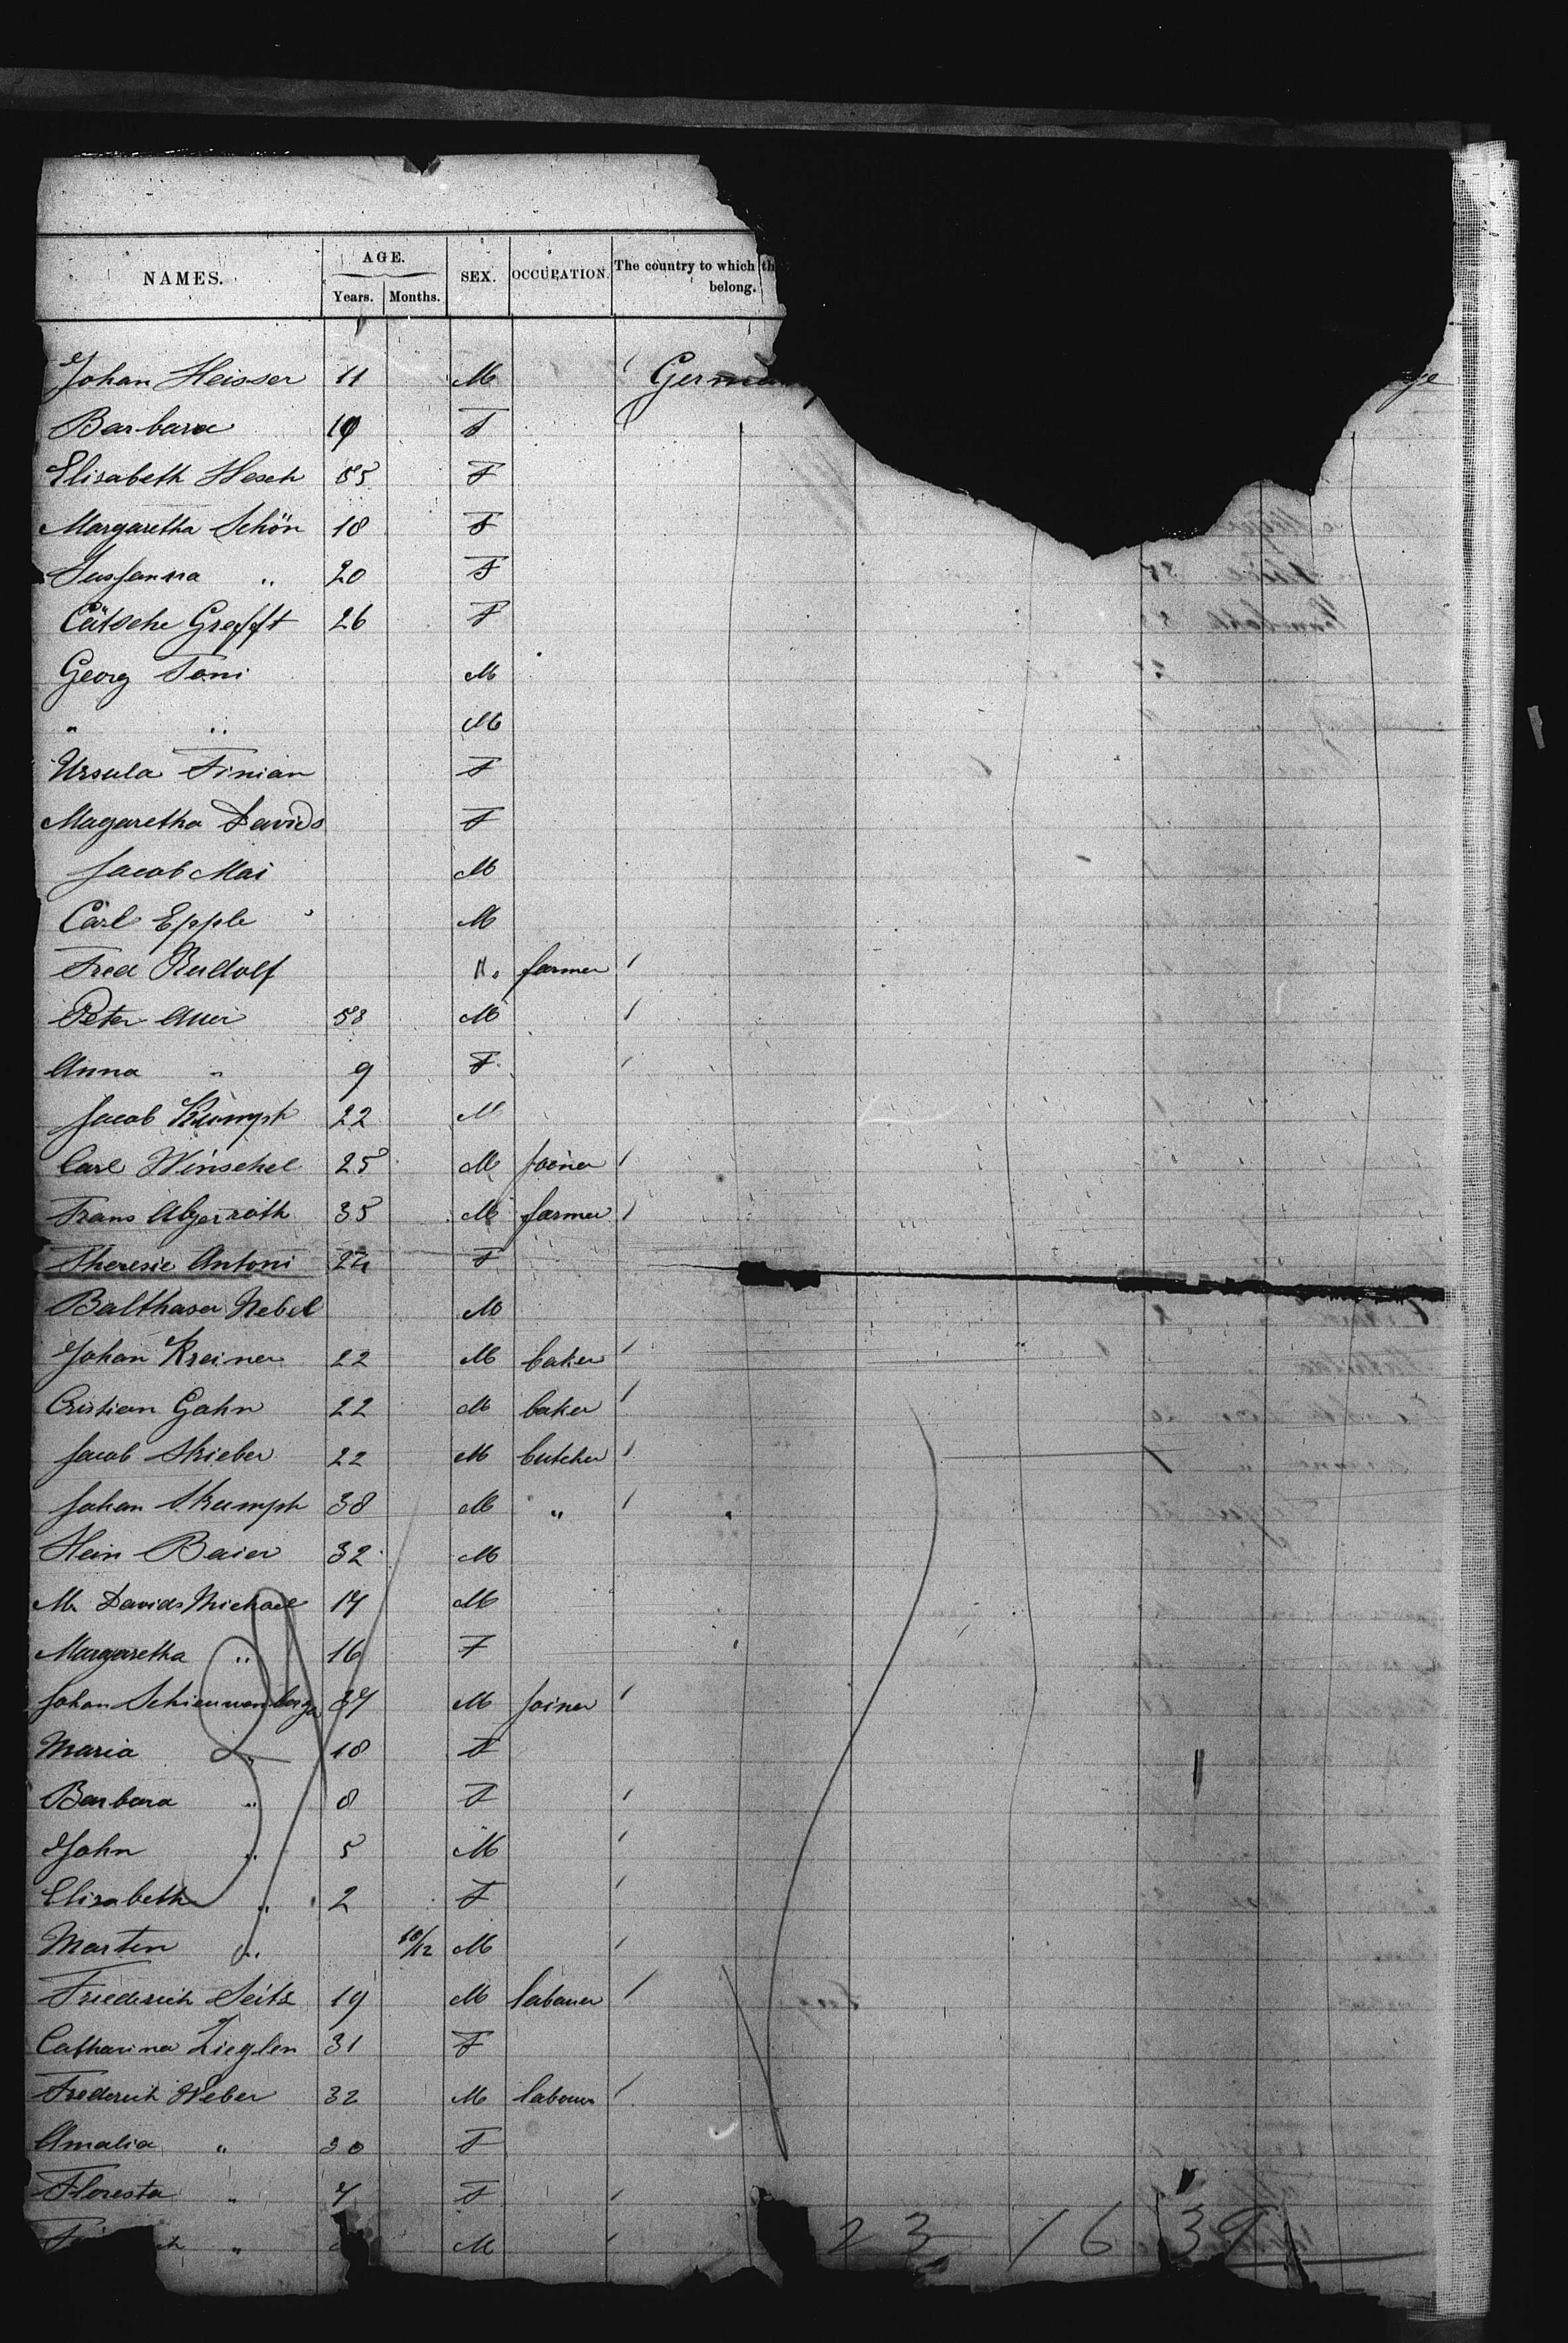 NAMES. AGE. Years. Months. SEX. OCCUPATION. The country to which th belong.
Johan Heisser 11 M Germa
Barbara 19 F
Elisabeth Hesch 55 F
Margaretha Schön 18 F
Sussanna " 20 F
Grefft 26 F
Georg Toni M
" " M
Ursula Finian F
Magaretha Davids F
Jacob Mai M
Carl Epple M
Fred Rudolf M. farmer
Peter Auer 58 M
Anna " 9 F
Jacob 22 M
Carl Winschel 25 M Joiner
Frans 35 M farmer
Theresie Antoni 24 F
Balthaser Nebel M
Johan Kreiner 22 M baker
Cristian Gahn 22 M baker
Jacob Skieber 22 M butcher
Johan 38 M "
Hein Baier 32 M
Mr Davids Michael 17 M
Margaretha " 16 F
Johan 37 M Joiner
Maria " 18 F
Barbara " 8 F
John " 5 M
Elisabeth " 2 F
Marten " 10/12 M
Friederich Seitz 19 M labauer
Catharina Zieglen 31 F
Frederich Weber 32 M labouer
Amalia " 30 F
Floresta " 7 F
" M
23 16 39